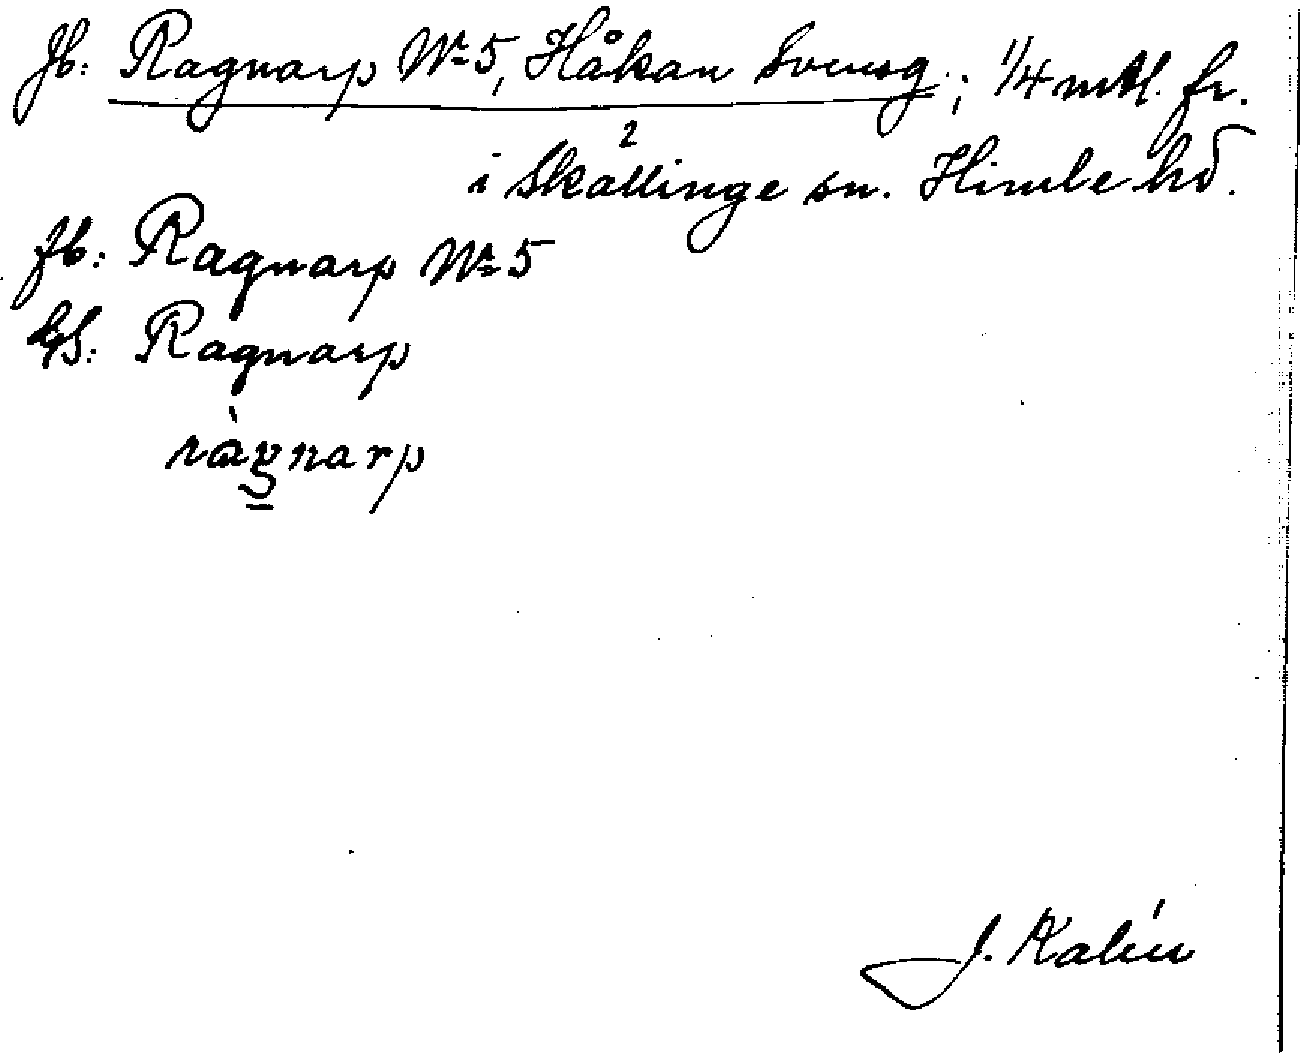 Jb: Ragnarp No 5, Håkan Svensg.; 1/4 mtl. fr.
i Skällinge sn. Himle hd.
fb: Ragnarp No 5
GS: Ragnarp
ràgnarp
J. Kalén